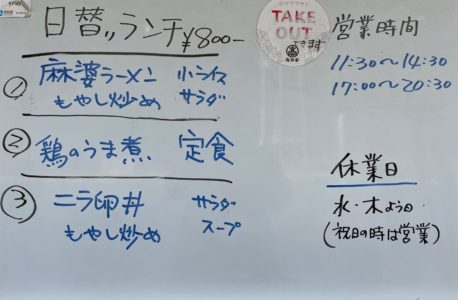 日替ランチ ¥800-
① 麻婆ラーメン 小ライス
もやし炒め サラダ
② 鶏のうま煮 定食
③ ニラ卵丼 サラダ
もやし炒め スープ
TAKE
OUT
できます
営業時間
11:30〜14:30
17:00〜20:30
休業日
水・木よう日
(祝日の時は営業)